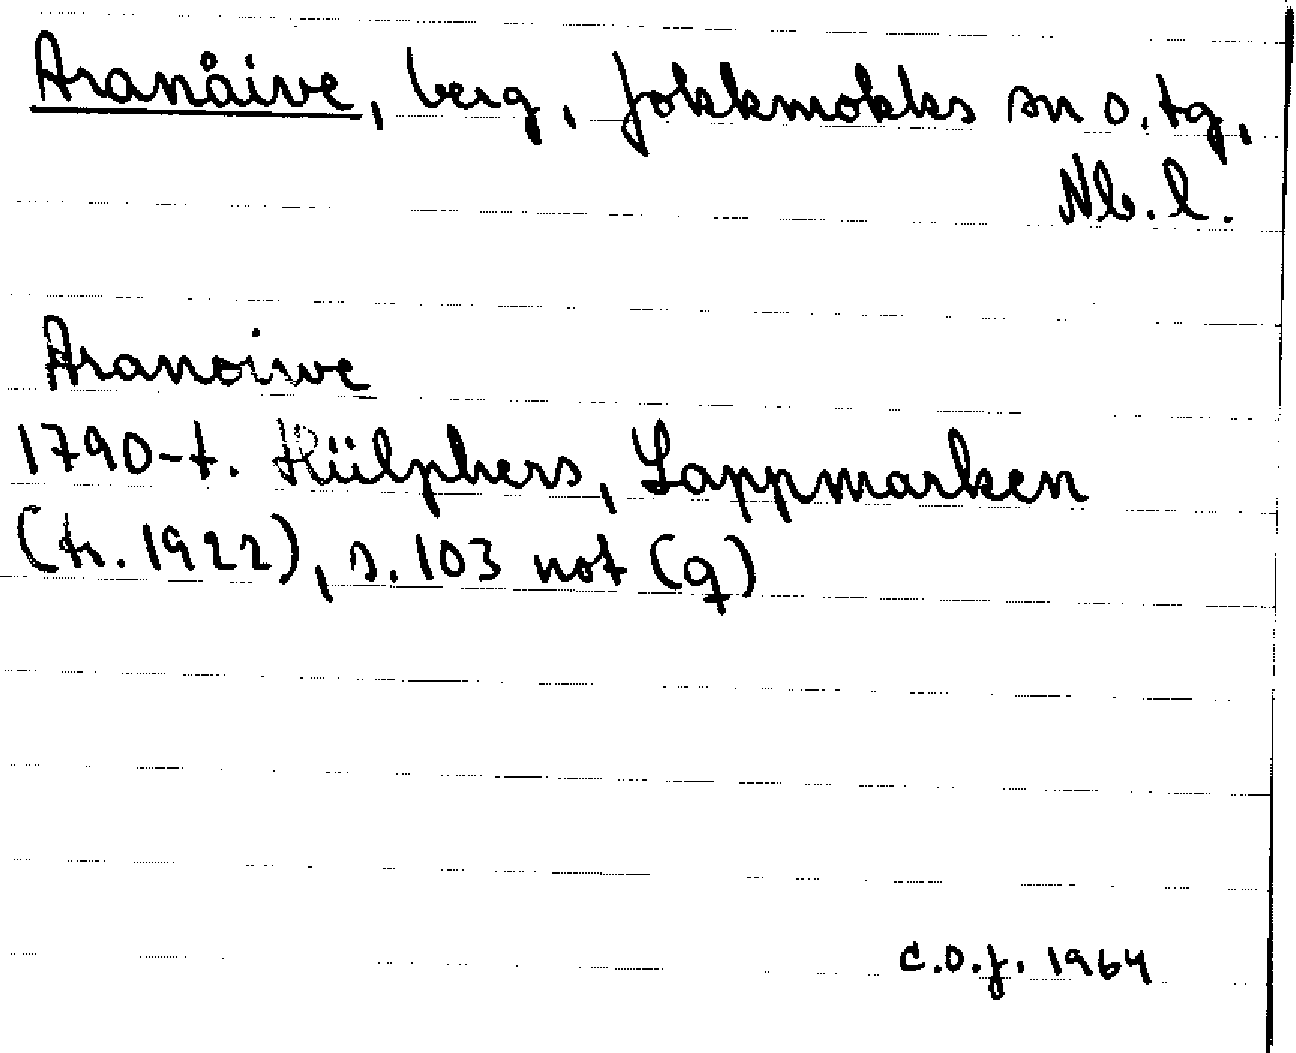 Aranåive, berg, Jokkmokks sn o. tg,
Nb. l.
Aranoiwe
1790-t. Hülphers, Lappmarken
(tr. 1922), s. 103 not (q)
C.O.J. 1964